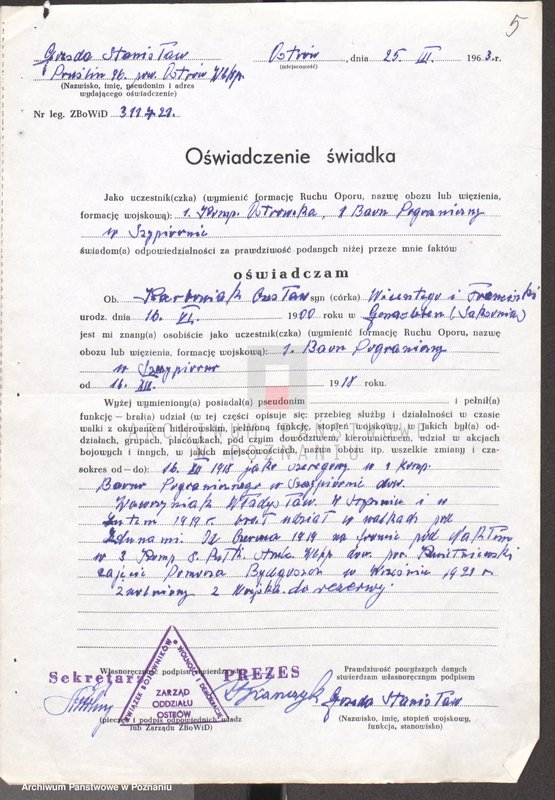 5
Gozda Stanisław Ostrów, dnia 25 III. 1963. r.
(miejscowość)
Pruślin 96. pow. Ostrów Wlkp.
(Nazwisko, imię, pseudonim i adres
wydającego oświadczenie)
Nr leg. ZBoWiD
Oświadczenie świadka
Jako uczestnik(czka) (wymienić formację Ruchu Oporu, nazwę obozu lub więzienia,
formację wojskową): 1. Komp. Ostrowska, 1 Baon Pograniczny
w Szypiornie
świadom(a) odpowiedzialności za prawdziwość podanych niżej przeze mnie faktów
oświadczam
Ob. syn (córka) i
urodz. dnia 16. 1900 roku w
jest mi znany(a) osobiście jako uczestnik(czka) (wymienić formację Ruchu Oporu, nazwę
obozu lub więzienia, formację wojskową): 1. Baon Pograniczny
w Szczypiornie
od 16. XII. 1918 roku.
Wyżej wymieniony(a) posiadał(a) pseudonim i pełnił(a)
funkcję — brał(a) udział (w tej części opisuje się: przebieg służby i działalności w czasie
walki z okupantem hitlerowskim, pełnioną funkcję, stopień wojskowy, w jakich był(a) od-
działach, grupach, placówkach pod czym dowództwem, kierownictwem, udział w akcjach
bojowych i innych, w jakich miejscowościach, nazwa obozu itp. wszelkie zmiany i cza-
sokres od — do): 16. XII 1918 jako szeregowy w 1 komp.
Baonu Pogranicznego w Szczypiornie dow.
Wawrzyniak Władysław. W Styczniu i w
Lutem 1919 r. brał udział w walkach pod
Zdunami. Czerwca 1919 na froncie pod
w 3 Komp Wlkp dow. por.
zajęcie Pomorza Bydgoszcz w Wrześniu 1921 r
zwolniony z Wojska do rezerwy.
Własnoręczność podpisu stwierdzam
Prawdziwość powyższych danych
stwierdzam własnoręcznym podpisem
Sekretarz PREZES
ZWIĄZEK BOJOWNIKÓW O WOLNOŚĆ I DEMOKRACJĘ
ZARZĄD
ODDZIAŁU
OSTRÓW
Gozda Stanisław
(pieczęć i podpis odpowiednich władz
lub Zarządu ZBoWiD)
(Nazwisko, imię, stopień wojskowy,
funkcja, stanowisko)
ARCHIWUM PAŃSTWOWE
W POZNANIU
Archiwum Państwowe w Poznaniu